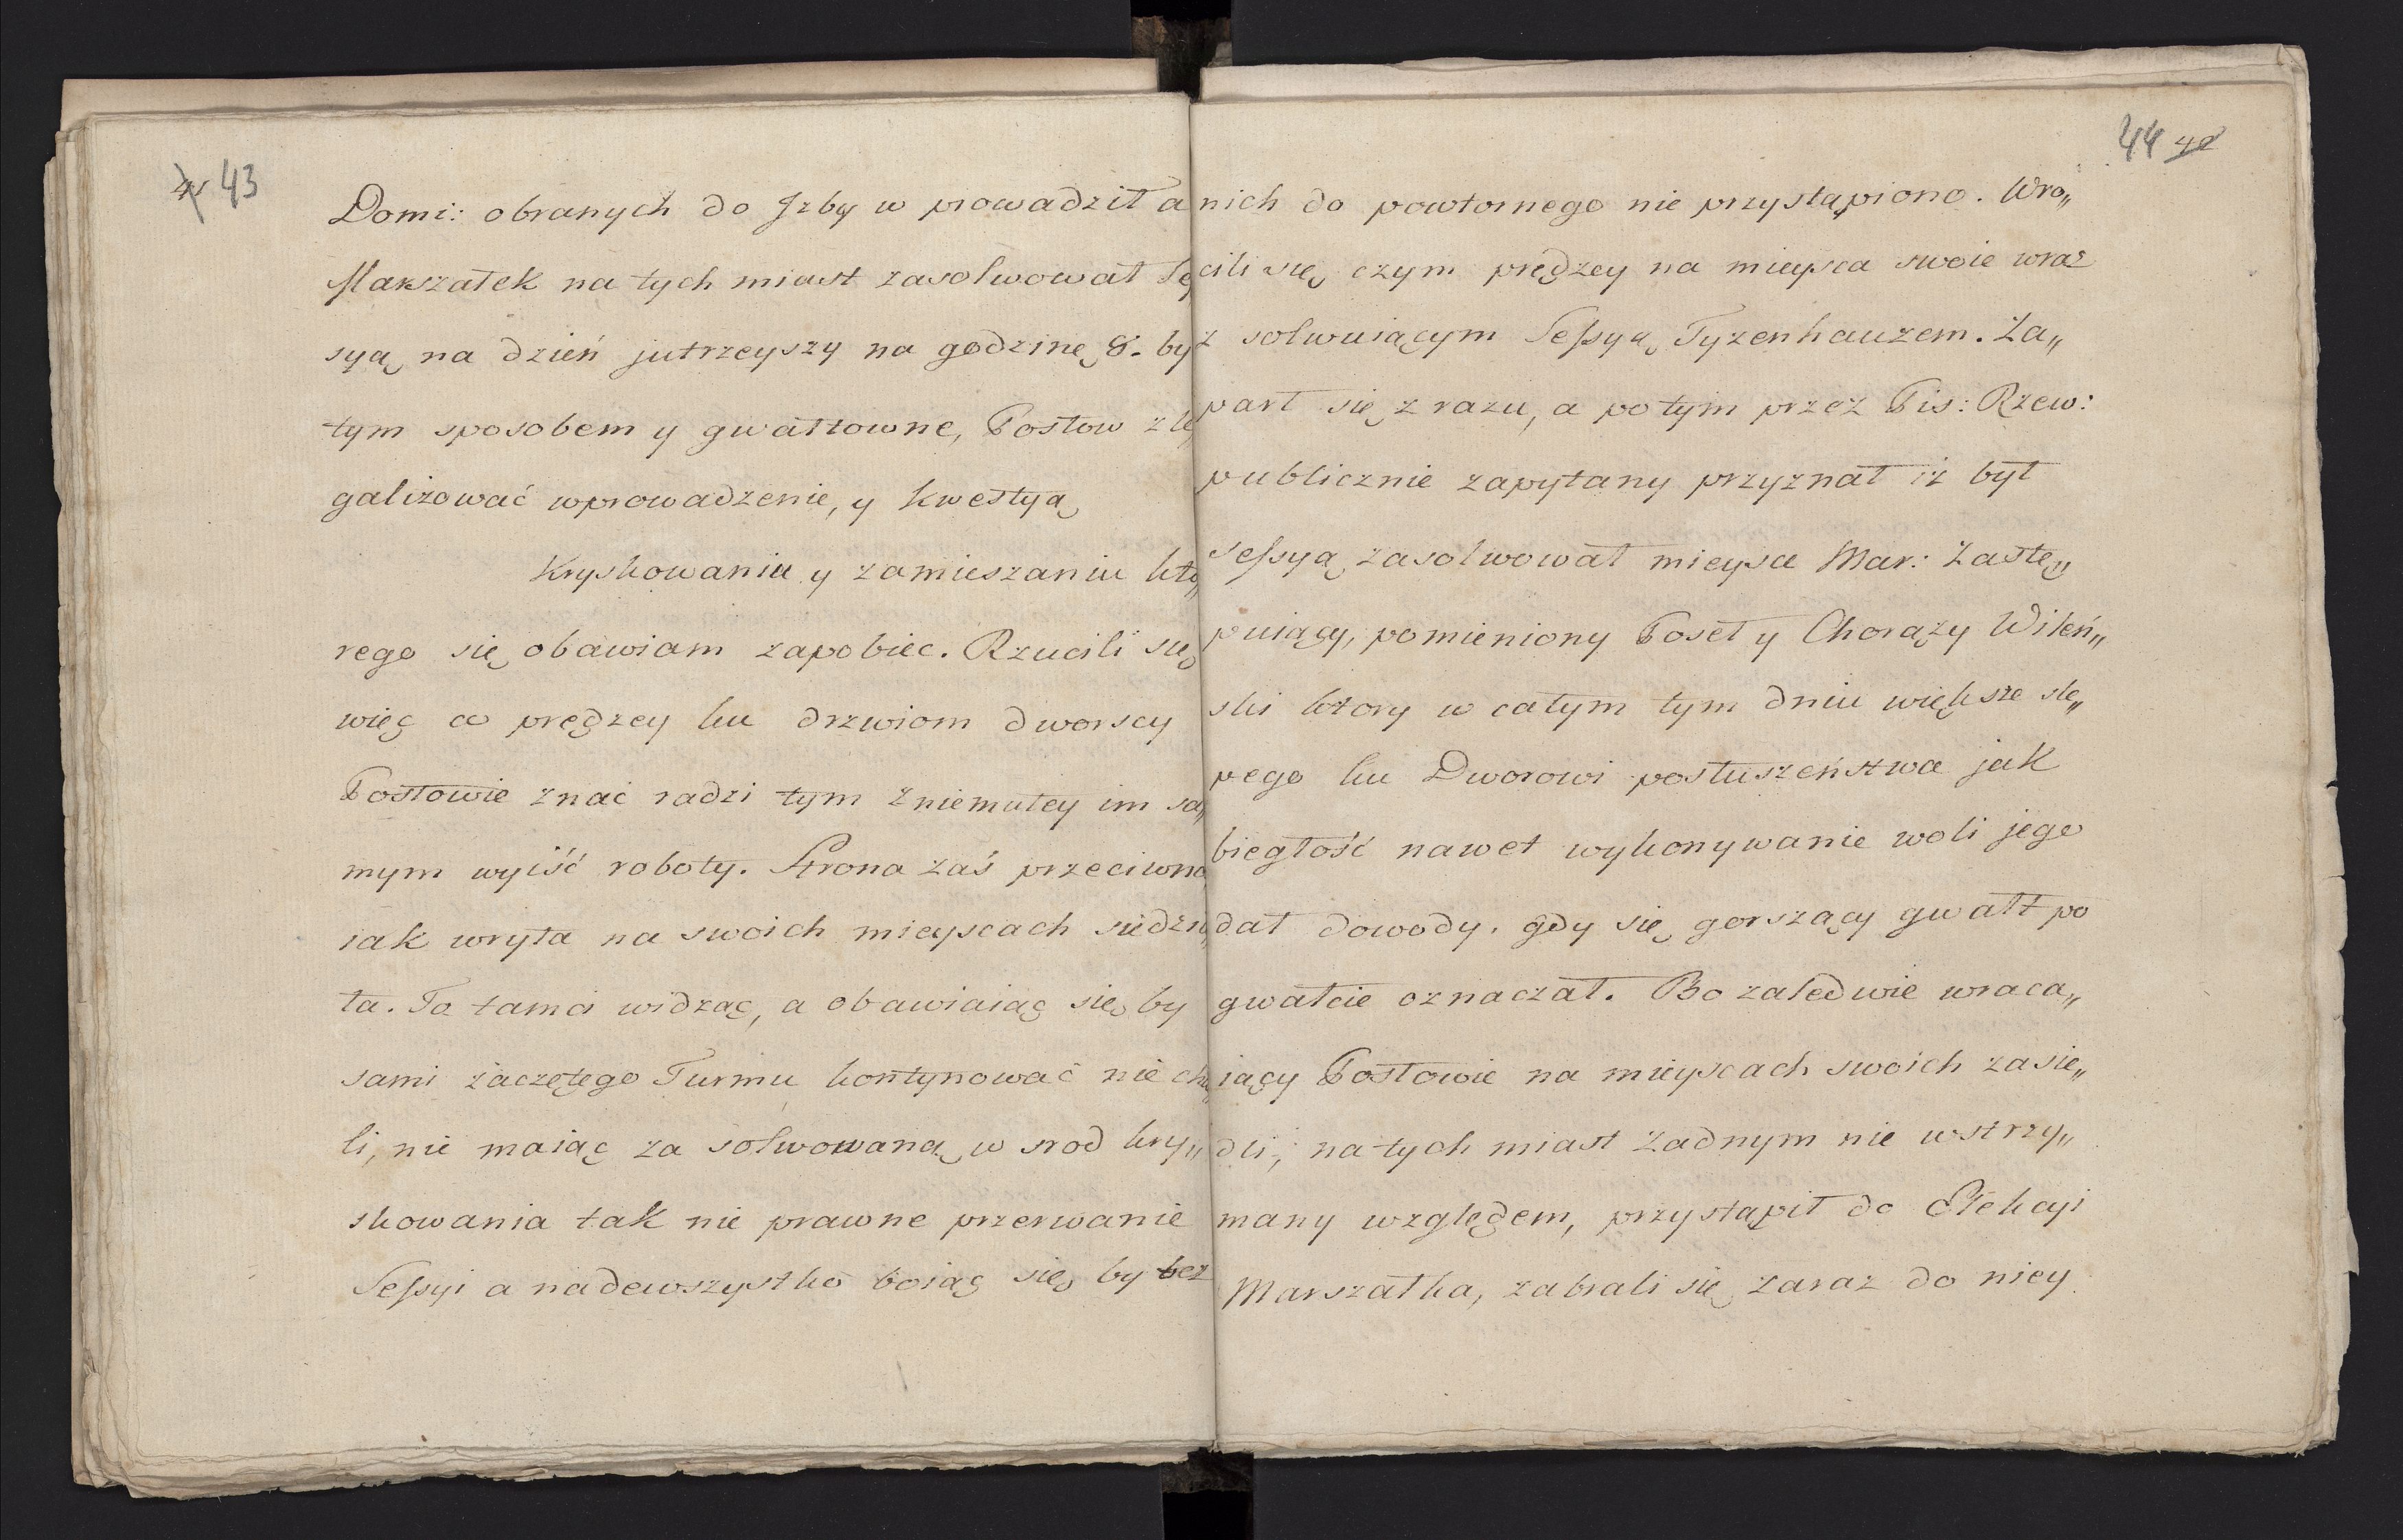 43
Domi: obranych do Jzby w prowadził a
Marszałek na tych miast zasolwował Sę
syą na dzień jutrzeyszy na godzinę 8. by
tym sposobem y gwałtowne, Posłow z le
galizować wprowadzenie, y kwestyą
Kryskowaniu y zamieszaniu kto„
rego się obawiam zapobiec. Rzucili się
więc co prędzey ku drzwiom dworscy
Posłowie znać radzi tym zniemiłey im sa„
mym wyiść roboty. Strona zaś przeciwna
iak wryta na swoich mieyscach siedzia„
ła. To tamci widząc, a obawiaiąc się by
sami zaczętego Turmu kontynować nie chcie„
li, nie maiąc za solwowaną w srod kry„
skowania tak nie prawne przerwanie
Seſsyi a nadewszystko boiąc się by bez
44 42
nich do powtornego nie przystąpiono. Wro„
cili się czym prędzey na mieysca swoie wraz
z solwuiącym Seſsyą Tyzenhauzem. Za„
parł się z razu, a potym przez Pis: Rzew:
publicznie zapytany przyznał iż był
seſsyą zasolwował mieysce Mar: Zastę„
puiący, pomieniony Poseł y Chorąży Wileń„
ski ktory w całym tym dniu większe śle„
pego ku Dworowi posłuszeństwa jak
biegłość nawet wykonywanie woli jego
dał dowody. gdy się gorszący gwałt po
gwałcie oznaczał. Bo zaledwie wraca„
iący Posłowie na mieyscach swoich zasie„
dli, natych miast żadnym nie wstrzy„
many względem, przystąpił do Elekcyi
Marszałka, zabrali się zaraz do niey